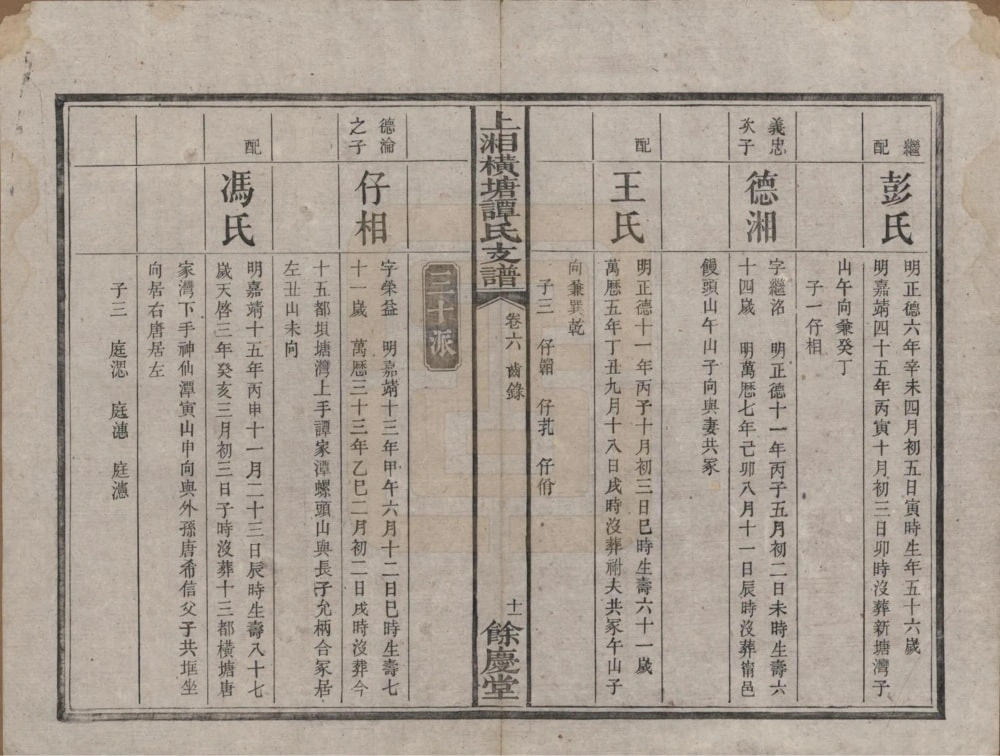 繼
配
彭氏
明正德六年辛未四月初五日寅時生年五十六歲
明嘉靖四十五年丙寅十月初三日卯時沒葬新塘灣子
山午向兼癸丁
子一仔相
義忠
次子
德湘
字繼洺 明正德十一年丙子五月初二日未時生壽六
十四歲 明萬歷七年己卯八月十一日辰時沒葬甯邑
饅頭山午山子向與妻共冢
配
王氏
明正德十一年丙子十月初三日巳時生壽六十一歲
萬歷五年丁丑九月十八日戌時沒葬祔夫共冢午山子
向兼巽乾
子三 仔霸 仔玌 仔佾
上湘橫塘譚氏支譜
卷六 齒錄
十一
餘慶堂
三十派
德淪
之子
仔相
字榮益 明嘉靖十三年甲午六月十二日巳時生壽七
十一歲 萬歷三十三年乙巳二月初二日戌時沒葬今
十五都垻塘灣上手譚家潭螺頭山與長子允柄合冢居
左丑山未向
配
馮氏
明嘉靖十五年丙申十一月二十三日辰時生壽八十七
歲天啓三年癸亥三月初三日子時沒葬十三都橫塘唐
家灣下手神仙潭寅山申向與外孫唐希信父子共堰坐
向居右唐居左
子三 庭漗 庭漶 庭懣